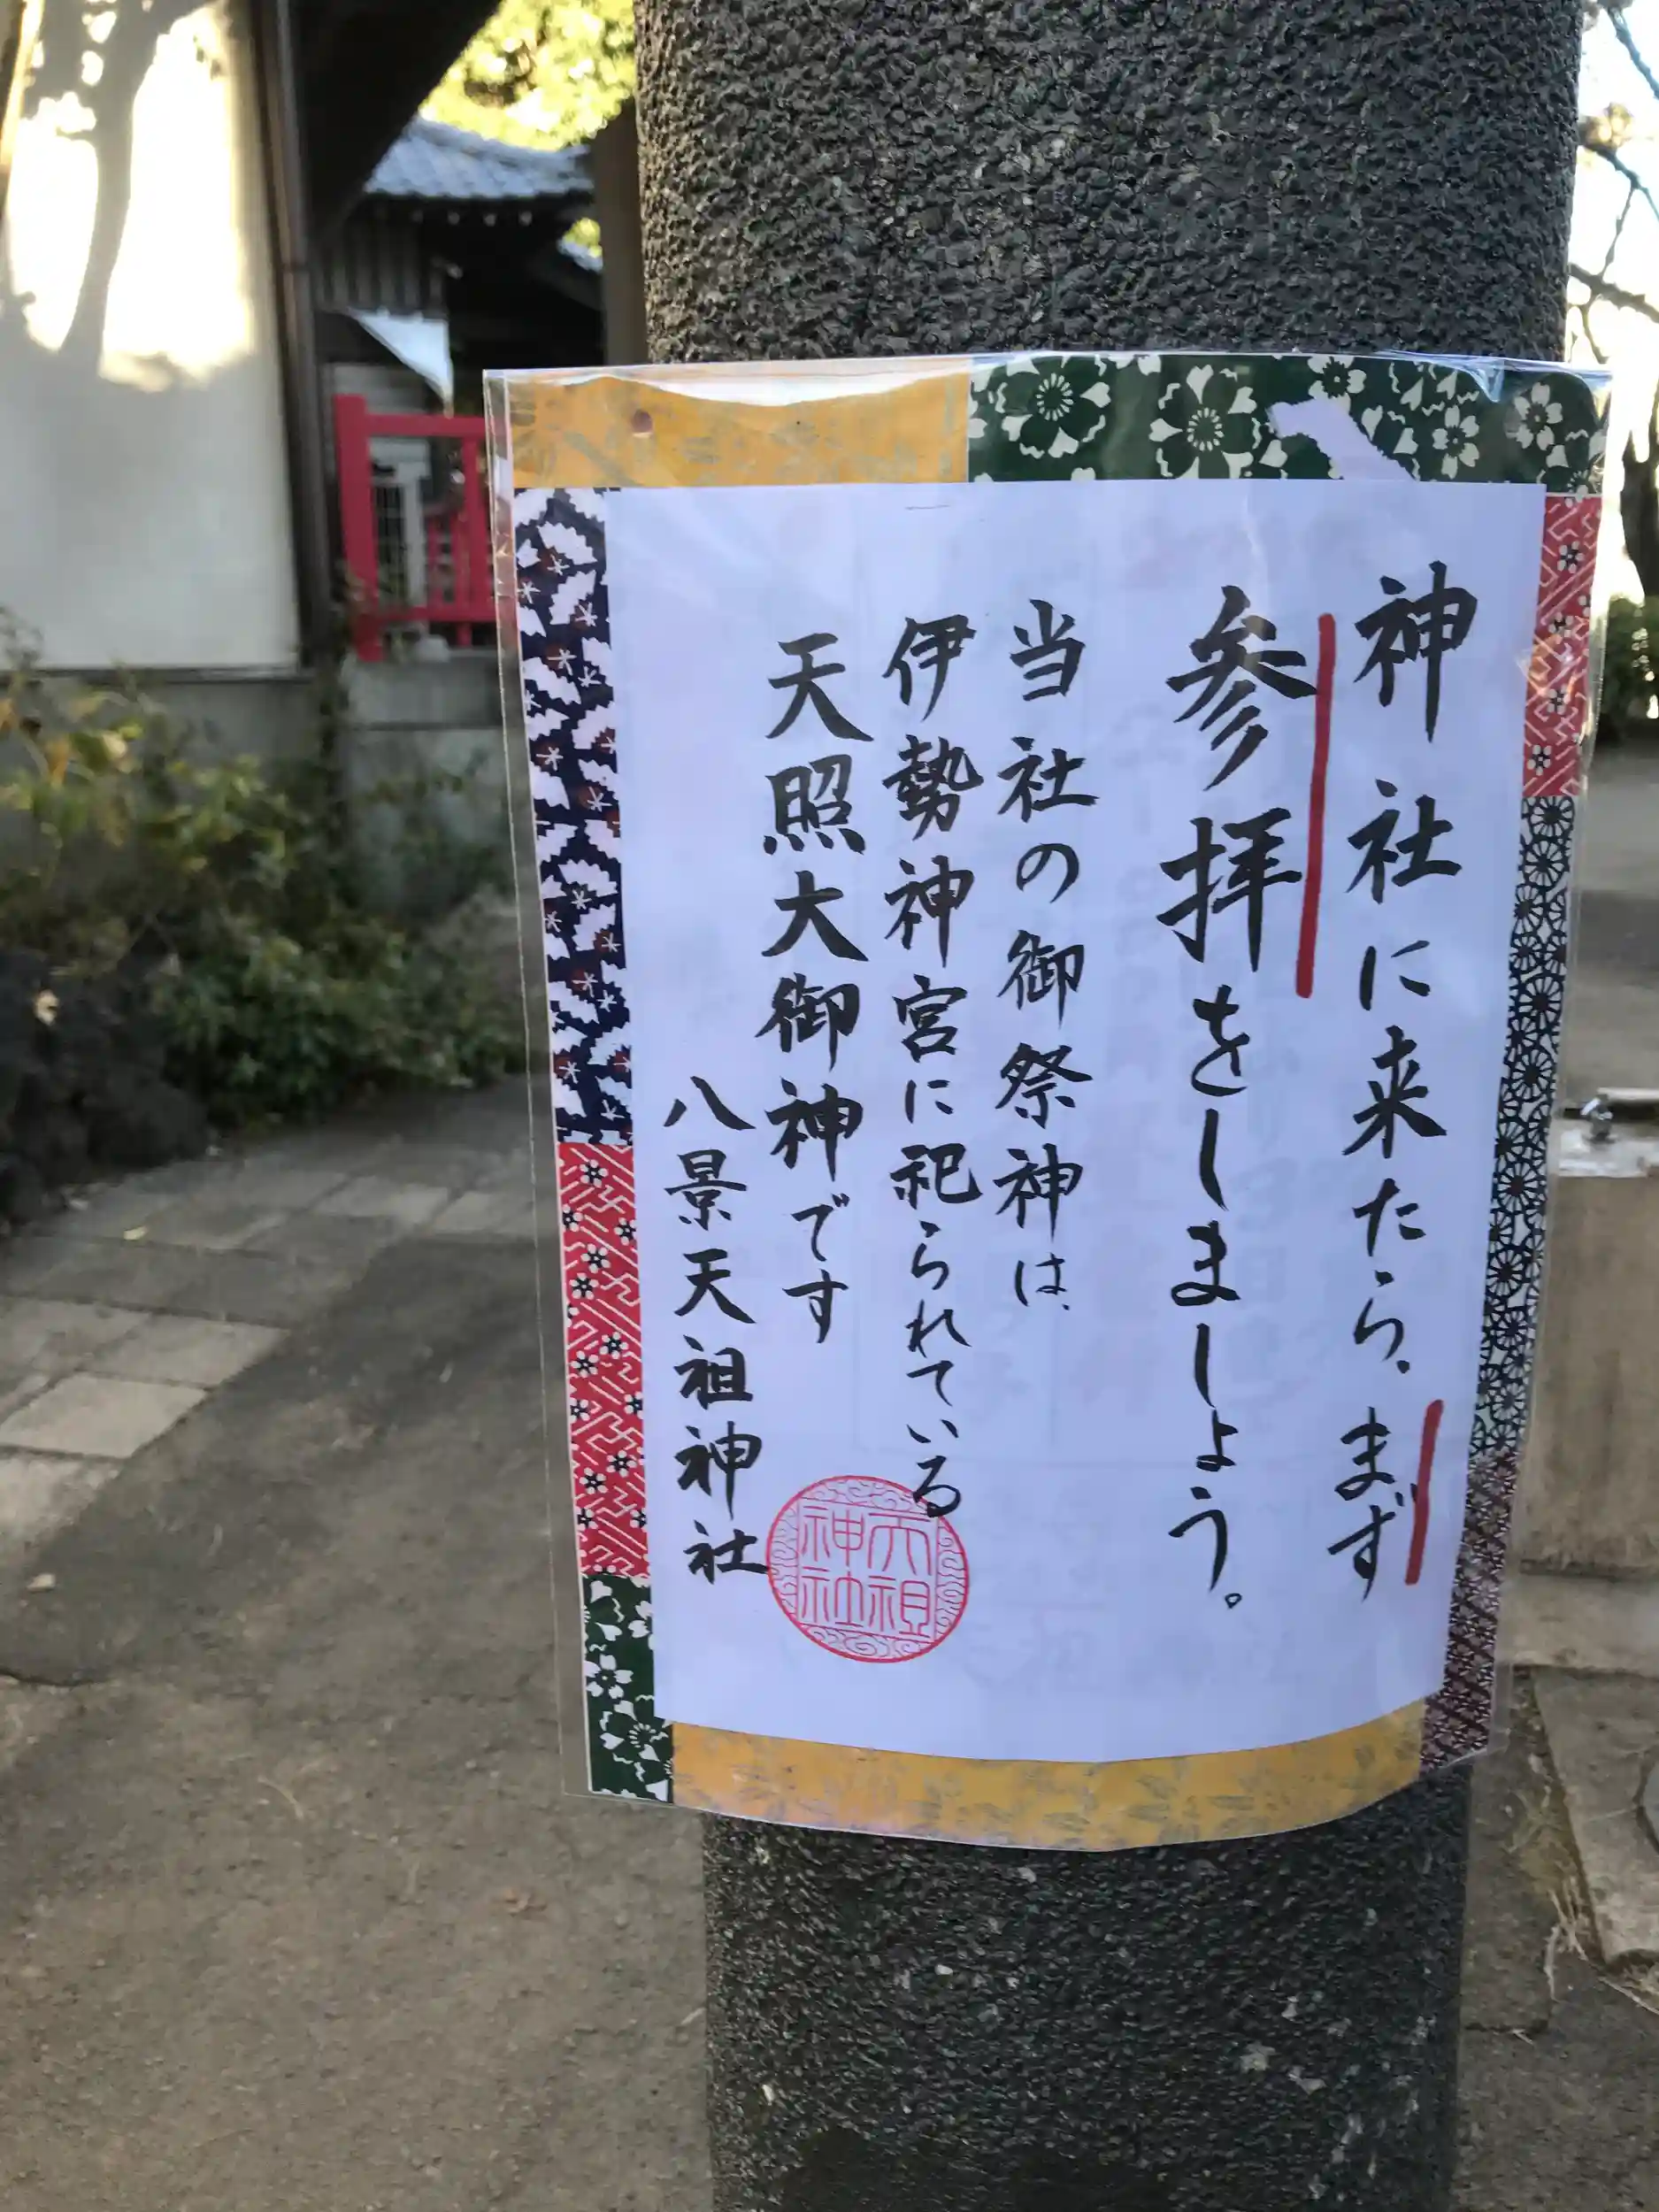 神社に来たら、まず
参拝をしましょう。
当社の御祭神は、
伊勢神宮に祀られている
天照大御神です
八景天祖神社
天祖
神社